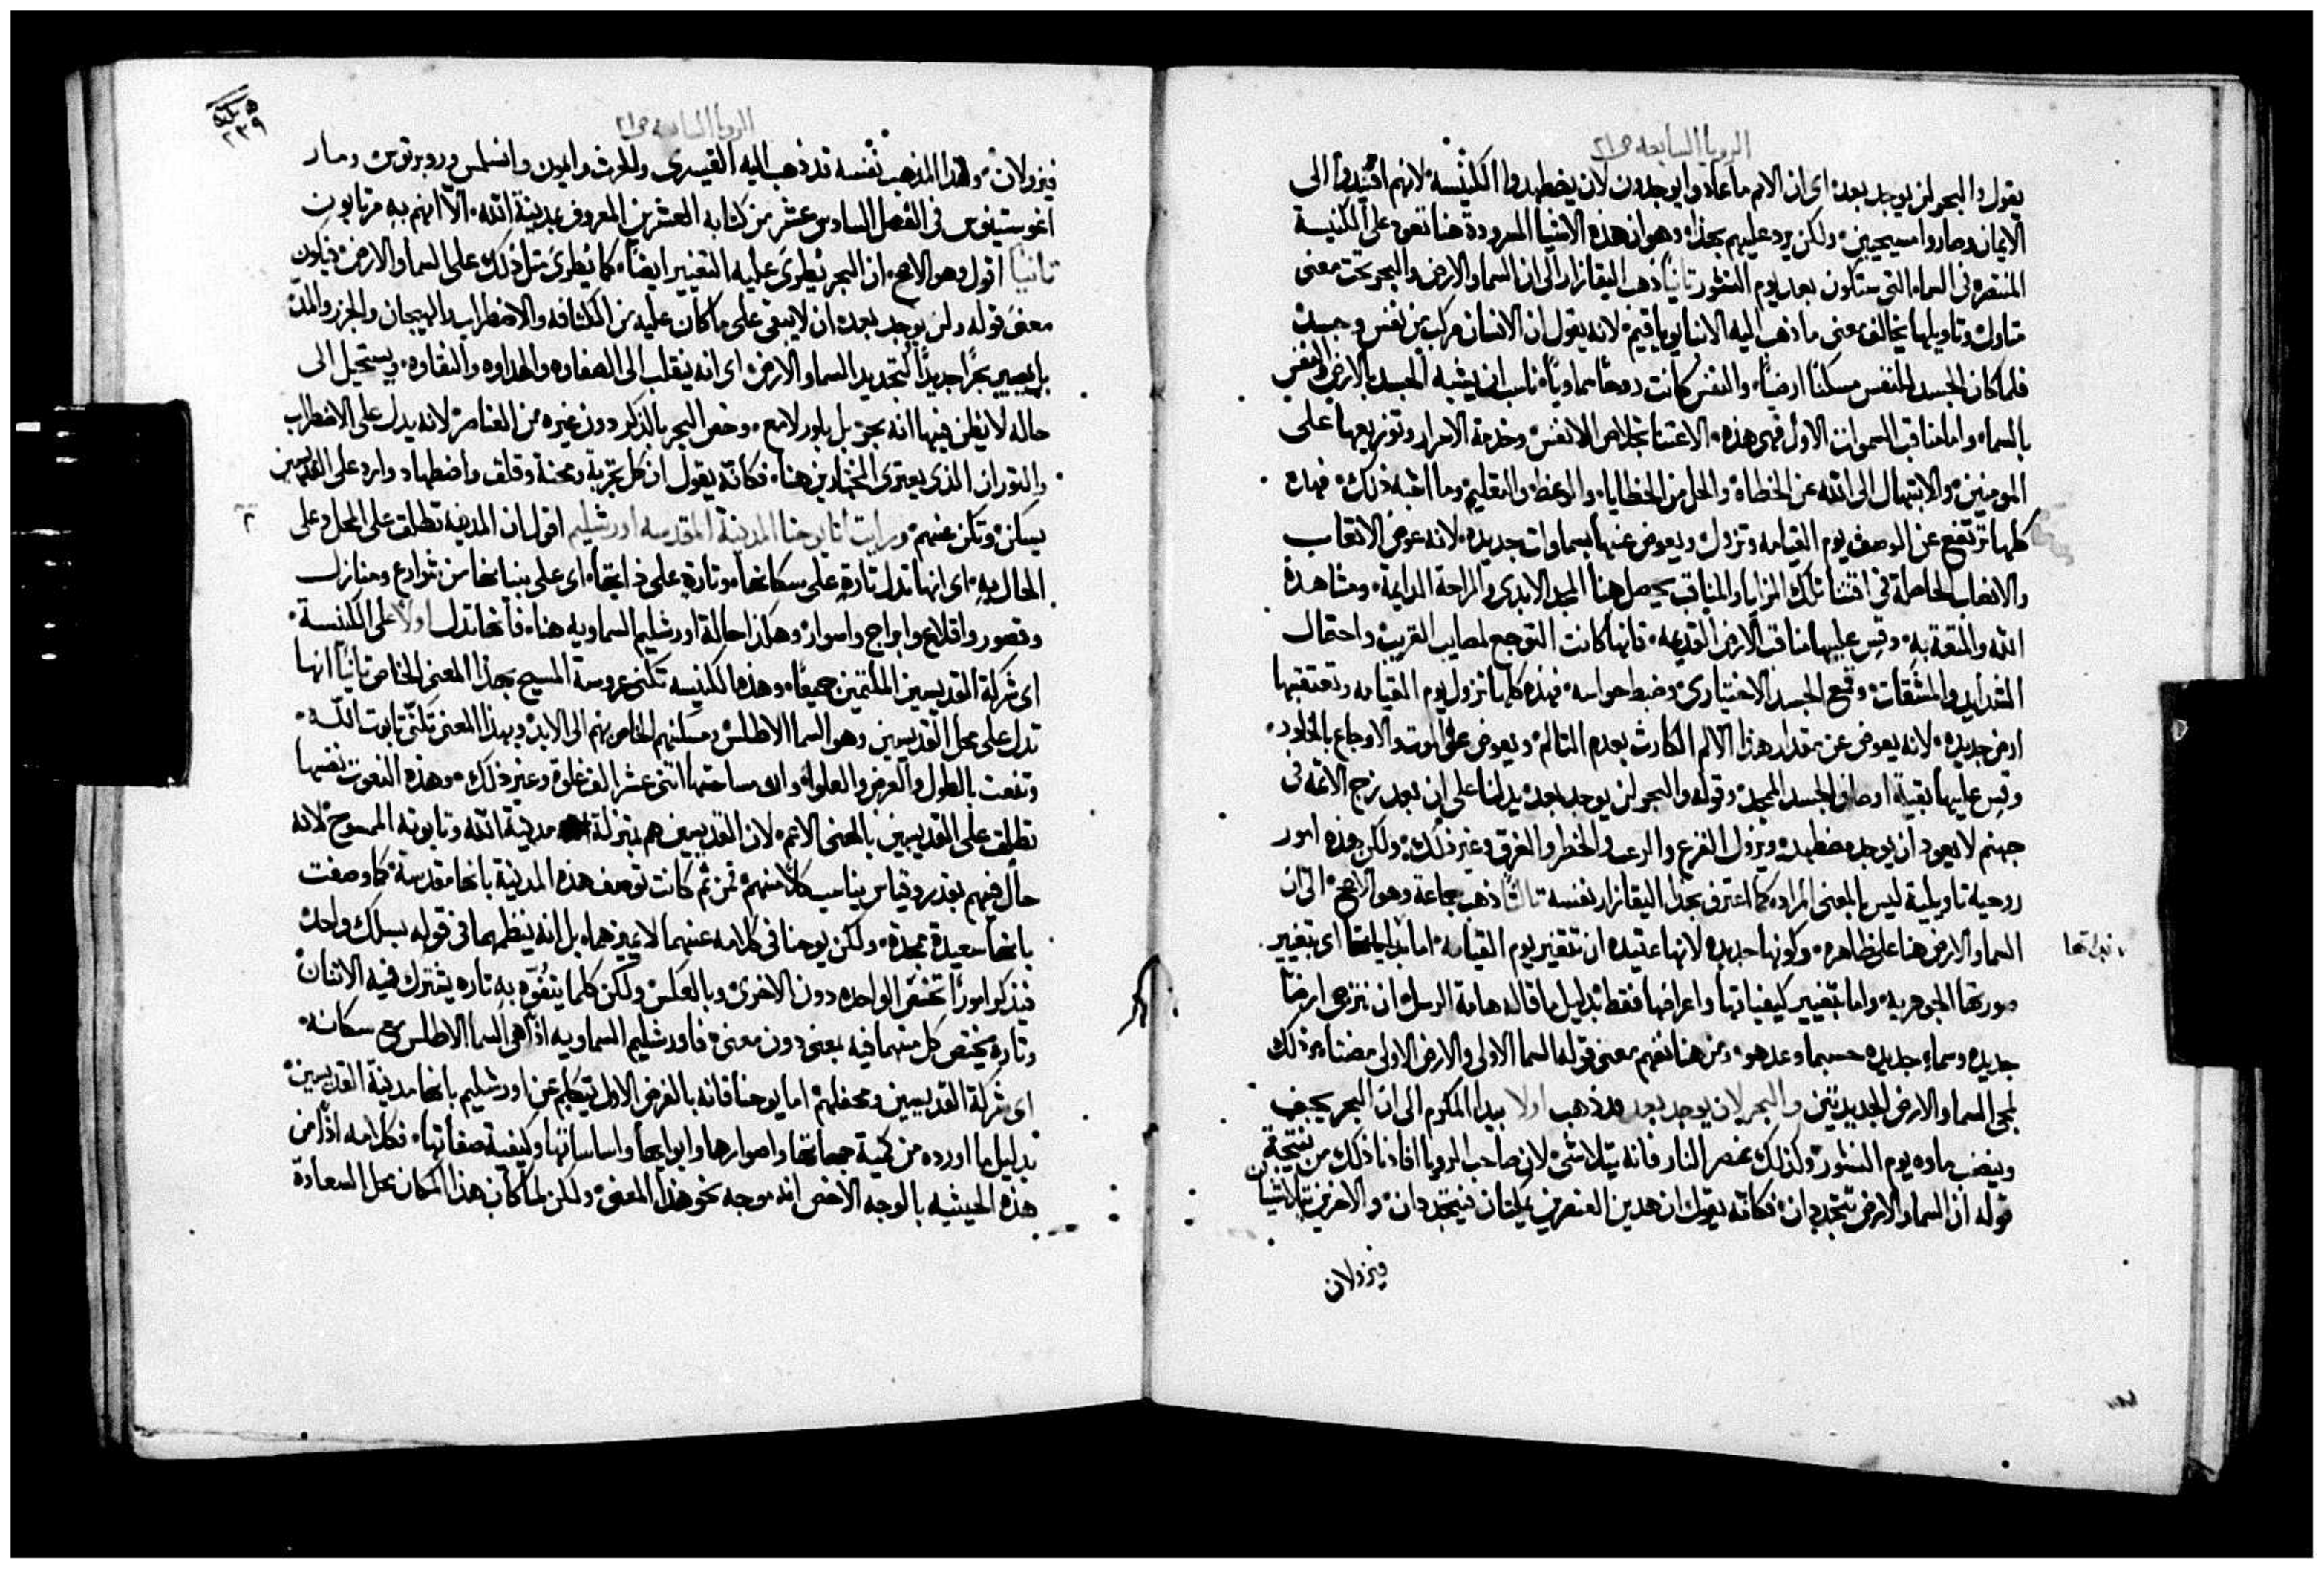 الرويا السابعه ص٢١
يقول والبحر لن يوجد بعده اى ان الامم ما عادوا يوجدون لان يضطهدوا الكنيسه لانهم اقتيدوا الى
الايمان وصاروا مسيحيين ولكن يرد عليهم بهذا وهو ان هذه الاشيا المسرودة هنا تعود على الكنيسة
المنتصره فى السماء التى ستكون بعد يوم النشور ثانيا ذهب اليقازار الى ان السما والارض والبحر تحت معنى
متاول وتاويلها يخالف معنى ما ذهب اليه الانبا يوياقيم لانه يقول ان الانسان مركب من نفس وجسد
فلما كان الجسد للنفس مسكنًا ارضيًا والنفس كانت روحًا سماويًا ناسب ان يشبه الجسد بالارض والنفس
بالسماء واما مناقب السموات الاول فهى هذه الاعتنا بخلاص الانفس وخدمة الاسرار وتوزيعها على
المومنين والابتهال الى الله عن الخطاة والحل من الخطايا والوعظ والتعليم وما اشبه ذلك فهذه
كلها ترتفع عن الوصف يوم القيامه وتزول ويعوض عنها بسماوات جديده لانه عوض الاتعاب
والاتعاب الحاصلة فى اقتنا تلك المزايا والمناقب يحصل هنا المجد الابدى والراحة الدايمة ومشاهدة
الله والمتعة به وقس عليها مناقب الارض القديمه فانها كانت التوجع لمصايب القريب واحتمال
الشدايد والمشقات وقمع الجسد الاختيارى وضبط حواسه فهذه كلها تزول يوم القيامه وتعتقبها
ارض جديده لانه يعوض عن مقدار هذا الالم الكارث بعدم التالم ويعوض عن الموت والاوجاع بالخلود
وقس عليها بقية اوصاف الجسد الممجد وقوله والبحر لن يوجد بعده يدلنا على ان بعد زج الاثمه فى
جهنم لا يعود ان يوجد مضطهد ويزول الفزع والرعب والخطر والغرق وغير ذلك ولكن هذه امور
روحية تاويلية ليس بالمعنى المراد كما اعترف بهذا اليقازار نفسه ثالثًا ذهب جماعة وهو الاصح الى ان
السما والارض هنا على ظاهره وكونها جديده لانها عتيده ان تتغير يوم القيامه اما بذاتها اى بتغيير
صورتها الجوهريه واما بتغيير كيفياتها واعراضها فقط بدليل ما قاله هامة الرسل ان نترجى ارضًا
جديده وسماء جديده حسبما وعد هو ومن هنا نفهم معنى قوله السما الاولى والارض الاولى مضتا بعد ذلك
لمجى السما والارض الجديدتين والبحر لان يوجد بعد قد ذهب اولا بيدا المكرم الى ان البحر يجف
وينضب ماوه يوم النشور وكذلك عنصر النار فانه يتلاشى لان صاحب الرويا افادنا ذلك من نتيجة
قوله ان السما والارض تتجددان فكانه يقول ان هذين العنصرين يمكثان فيتجددان والاخرين يتلاشيان
فيزولان
الرويا السابعه ص٢١
فيزولان وهذا المذهب نفسه قد ذهب اليه القيسرى والحرث وايمون وانسلمس وروبرتوس ومار
اغوستينوس فى الفصل السادس عشر من كتابه العشرين المعروف بمدينة الله الا انهم به مرتابون
ثانيًا اقول وهو الاصح ان البحر يُطرى عليه التغيير ايضًا كما يُطرى مثل ذلك على السما والارض فيكون
معنى قوله ولن يوجد بعده ان لا يبقى على ما كان عليه من الكثافه والاضطراب والهيجان والجزر والمد
بل يصير بحرًا جديدًا لتجديد السما والارض اى انه ينقلب الى الصفاوه والهداوه والنقاوه ويستحيل الى
حاله لا يظن فيها انه بحر بل بلور لامع وخص البحر بالذكر دون غيره من العناصر لانه يدل على الاضطراب
والتوران الذى يعترى المختارين هنا فكانه يقول ان كل تجربة ومحنة وقلق واضطهاد وارد على القديسين
يسكن وتكن عنهم ورايت انا يوحنا المدينة المقدسه اورشليم اقول ان المدينه تطلق على المحل وعلى
الحال به اى انها تدل تارة على سكانها وتارة على ذاتها اى على بنيانها من شوارع ومنازل
وقصور وقلاع وابراج واسوار وهكذا حالة اورشليم السماويه هنا فانها تدل اولًا على الكنيسة
اى شركة القديسين الملتئمين جميعًا وهذه الكنيسه تكنى عروسة المسيح بهذا المعنى الخاص ثانيًا انها
تدل على محل القديسين وهو السما الاطلس ومسكنهم الخاص بهم الى الابد وبهذا المعنى تكنى تابوت الله
وتنعت بالطول والعرض والعلو وان مساحتها اثنى عشر الف غلوة وغير ذلك وهذه النعوت نفسها
تطلق على القديسين بالمعنى الاعم لان القديسين هم بمنزلة مدينة الله وتابوته الممسوح لانه
حالٌ فيهم بقدر وقياس يناسب كلًا منهم فمن ثم كانت توصف هذه المدينة بانها مقدسة كما وصفت
بانها سعيدة ممجدة ولكن يوحنا فى كلامه عنهما لا يميزهما بل انه ينظمهما فى قوله بسلك واحد
فيذكر امورًا تختص الواحده دون الاخرى وبالعكس ولكن كلما يتفوه به تاره يشترك فيه الاثنان
وتارة يختص كل منهما فيه بمعنى دون معنى فاورشليم السماويه اذًا هى السما الاطلس مع سكانه
اى شركة القديسين ومحفلهم اما يوحنا فانه بالغرض الاول يتكلم عن اورشليم بانها مدينة القديسين
بدليل ما اورده من كمية جهاتها واسوارها وابوابها واساساتها وكيفية صفاتها فكلامه اذًا من
هذه الحيثيه بالوجه الاخص انه موجه نحو هذا المعنى ولكن لما كان هذا المكان محل السعادة